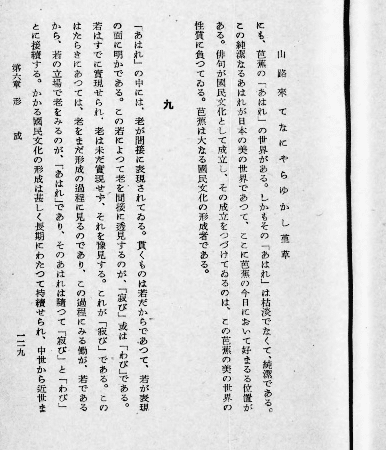 山路來てなにやらゆかし菫草
にも、芭蕉の「あはれ」の世界がある。しかもその「あはれ」は枯淡でなくて、純潔である。
この純潔なるあはれが日本の美の世界であつて、ここに芭蕉の今日において好まるる位置が
ある。俳句が國民文化として成立し、その成立をつづけてゐるのは、この芭蕉の美の世界の
性質に負つてゐる。芭蕉は大なる國民文化の形成者である。
九
「あはれ」の中には、老が間接に表現されてゐる。貫くものは若だからであつて、若が表現
の面に明かである。この若によつて老を間接に透見するのが、「寂び」或は「わび」である。
若はすでに實現せられ、老は未だ實現せず、それを豫見する。これが「寂び」である。この
はたらきにあつては、老をまだ形成の過程に見るのであり、この過程にみる働が、若である
から、若の立場で老をみるのが、「あはれ」であり、そのあはれは隨つて「寂び」と「わび」
とに接續する。かかる國民文化の形成は甚しく長期にわたつて持續せられ、中世から近世ま
第六章 形成
一二九